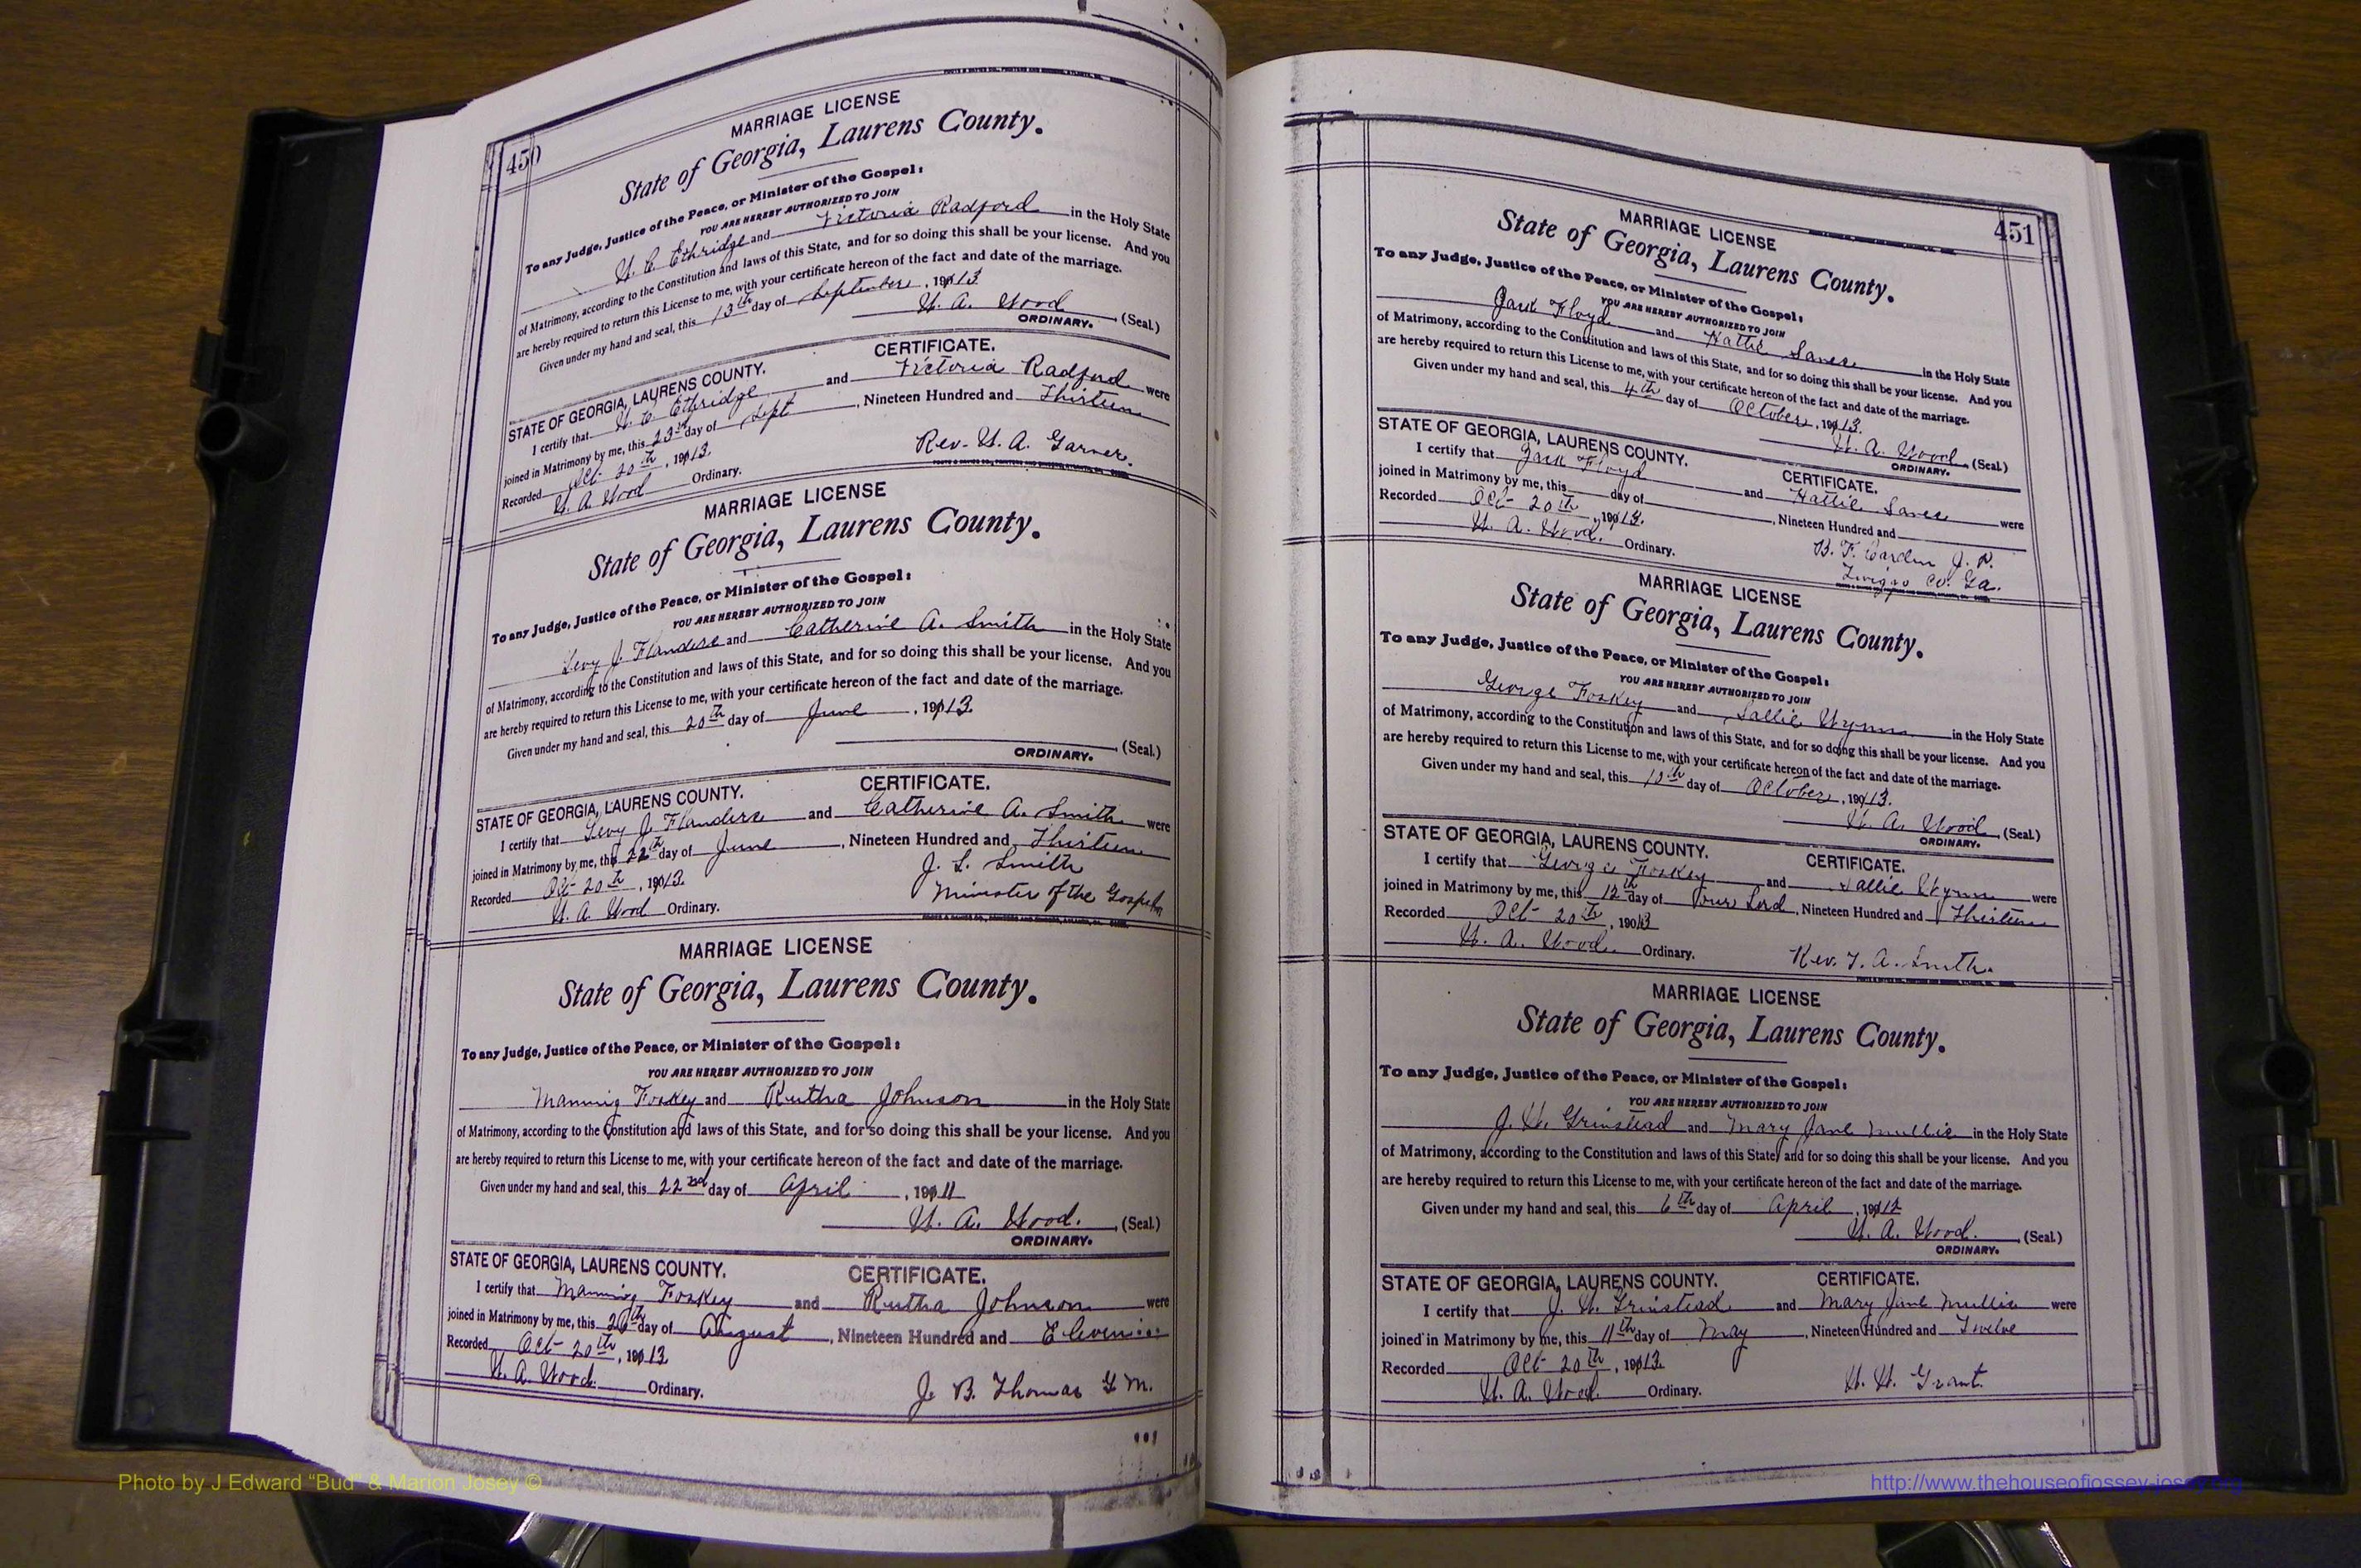 450
MARRIAGE LICENSE
State of Georgia, Laurens County.
To any Judge, Justice of the Peace, or Minister of the Gospel:
YOU ARE HEREBY AUTHORIZED TO JOIN
W. C. Ethridge and Victoria Radford in the Holy State
of Matrimony, according to the Constitution and laws of this State, and for so doing this shall be your license. And you
are hereby required to return this License to me, with your certificate hereon of the fact and date of the marriage.
Given under my hand and seal, this 13th day of September, 1913
W. A. Wood (Seal.)
ORDINARY.
STATE OF GEORGIA, LAURENS COUNTY. CERTIFICATE.
I certify that W. C. Ethridge and Victoria Radford were
joined in Matrimony by me, this 23rd day of Sept, Nineteen Hundred and Thirteen
Recorded Oct 20th, 1913.
W. A. Wood Ordinary. Rev. W. A. Garner.
MARRIAGE LICENSE
State of Georgia, Laurens County.
To any Judge, Justice of the Peace, or Minister of the Gospel:
YOU ARE HEREBY AUTHORIZED TO JOIN
Levy J. Flanders and Catherine A. Smith in the Holy State
of Matrimony, according to the Constitution and laws of this State, and for so doing this shall be your license. And you
are hereby required to return this License to me, with your certificate hereon of the fact and date of the marriage.
Given under my hand and seal, this 20th day of June, 1913.
(Seal.)
ORDINARY.
STATE OF GEORGIA, LAURENS COUNTY. CERTIFICATE.
I certify that Levy J. Flanders and Catherine A. Smith were
joined in Matrimony by me, this 22th day of June, Nineteen Hundred and Thirteen
Recorded Oct 20th, 1913. J. L. Smith
W. A. Wood Ordinary. Minister of the Gospel
MARRIAGE LICENSE
State of Georgia, Laurens County.
To any Judge, Justice of the Peace, or Minister of the Gospel:
YOU ARE HEREBY AUTHORIZED TO JOIN
Manning Foskey and Rutha Johnson in the Holy State
of Matrimony, according to the Constitution and laws of this State, and for so doing this shall be your license. And you
are hereby required to return this License to me, with your certificate hereon of the fact and date of the marriage.
Given under my hand and seal, this 22nd day of April, 1911
W. A. Wood. (Seal.)
ORDINARY.
STATE OF GEORGIA, LAURENS COUNTY. CERTIFICATE.
I certify that Manning Foskey and Rutha Johnson were
joined in Matrimony by me, this day of August, Nineteen Hundred and Eleven
Recorded Oct 20th, 1913.
W. A. Wood. Ordinary. J. B. Thomas G. M.
451
MARRIAGE LICENSE
State of Georgia, Laurens County.
To any Judge, Justice of the Peace, or Minister of the Gospel:
YOU ARE HEREBY AUTHORIZED TO JOIN
Jack Floyd and Hattie in the Holy State
of Matrimony, according to the Constitution and laws of this State, and for so doing this shall be your license. And you
are hereby required to return this License to me, with your certificate hereon of the fact and date of the marriage.
Given under my hand and seal, this 4th day of October, 1913.
W. A. Wood. (Seal.)
ORDINARY.
STATE OF GEORGIA, LAURENS COUNTY. CERTIFICATE.
I certify that Jack Floyd and Hattie were
joined in Matrimony by me, this day of , Nineteen Hundred and
Recorded Oct 20th, 1913. B. F. Carden J. P.
W. A. Wood. Ordinary. Twiggs Co. Ga.
MARRIAGE LICENSE
State of Georgia, Laurens County.
To any Judge, Justice of the Peace, or Minister of the Gospel:
YOU ARE HEREBY AUTHORIZED TO JOIN
George Foskey and Sallie Wynn in the Holy State
of Matrimony, according to the Constitution and laws of this State, and for so doing this shall be your license. And you
are hereby required to return this License to me, with your certificate hereon of the fact and date of the marriage.
Given under my hand and seal, this day of October, 1913.
W. A. Wood (Seal.)
ORDINARY.
STATE OF GEORGIA, LAURENS COUNTY. CERTIFICATE.
I certify that George Foskey and Sallie Wynn were
joined in Matrimony by me, this 12th day of our Lord, Nineteen Hundred and Thirteen
Recorded Oct 20th, 19013
W. A. Wood. Ordinary. Rev. T. A. Smith.
MARRIAGE LICENSE
State of Georgia, Laurens County.
To any Judge, Justice of the Peace, or Minister of the Gospel:
YOU ARE HEREBY AUTHORIZED TO JOIN
J. W. Grinstead and Mary Jane Mullis in the Holy State
of Matrimony, according to the Constitution and laws of this State, and for so doing this shall be your license. And you
are hereby required to return this License to me, with your certificate hereon of the fact and date of the marriage.
Given under my hand and seal, this 6th day of April, 1912
W. A. Wood. (Seal.)
ORDINARY.
STATE OF GEORGIA, LAURENS COUNTY. CERTIFICATE.
I certify that J. W. Grinstead and Mary Jane Mullis were
joined in Matrimony by me, this 11th day of May, Nineteen Hundred and Twelve
Recorded Oct 20th, 1913.
W. A. Wood. Ordinary. W. W. Grant.
Photo by J Edward "Bud" & Marion Josey ©
http://www.thehouseofjossey-josey.org